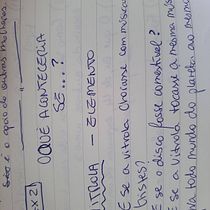 esse é o apoio de outras motivações.
x 2
O QUE ACONTECERIA
SE...?
VITROLA - ELEMENTO
E se a vitrola chocasse com músicas
tristes?
E se o disco fosse comestível?
se a vitrola tocasse a mesma mús
para todo mundo do planeta ao mesmo